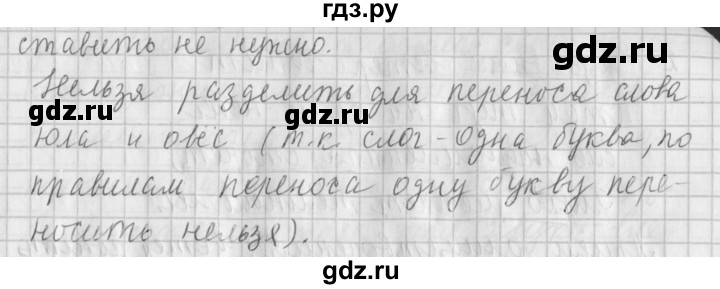 гдз.ру
ставить не нужно.
gdz.ru
Нельзя разделить для переноса слова
gdz.ru
gdz.ru
юла и овёс (т.к. слог - одна буква, по
правилам переноса одну букву пере-
gdz.ru
носить нельзя).
gdz.ru
gdz.ru